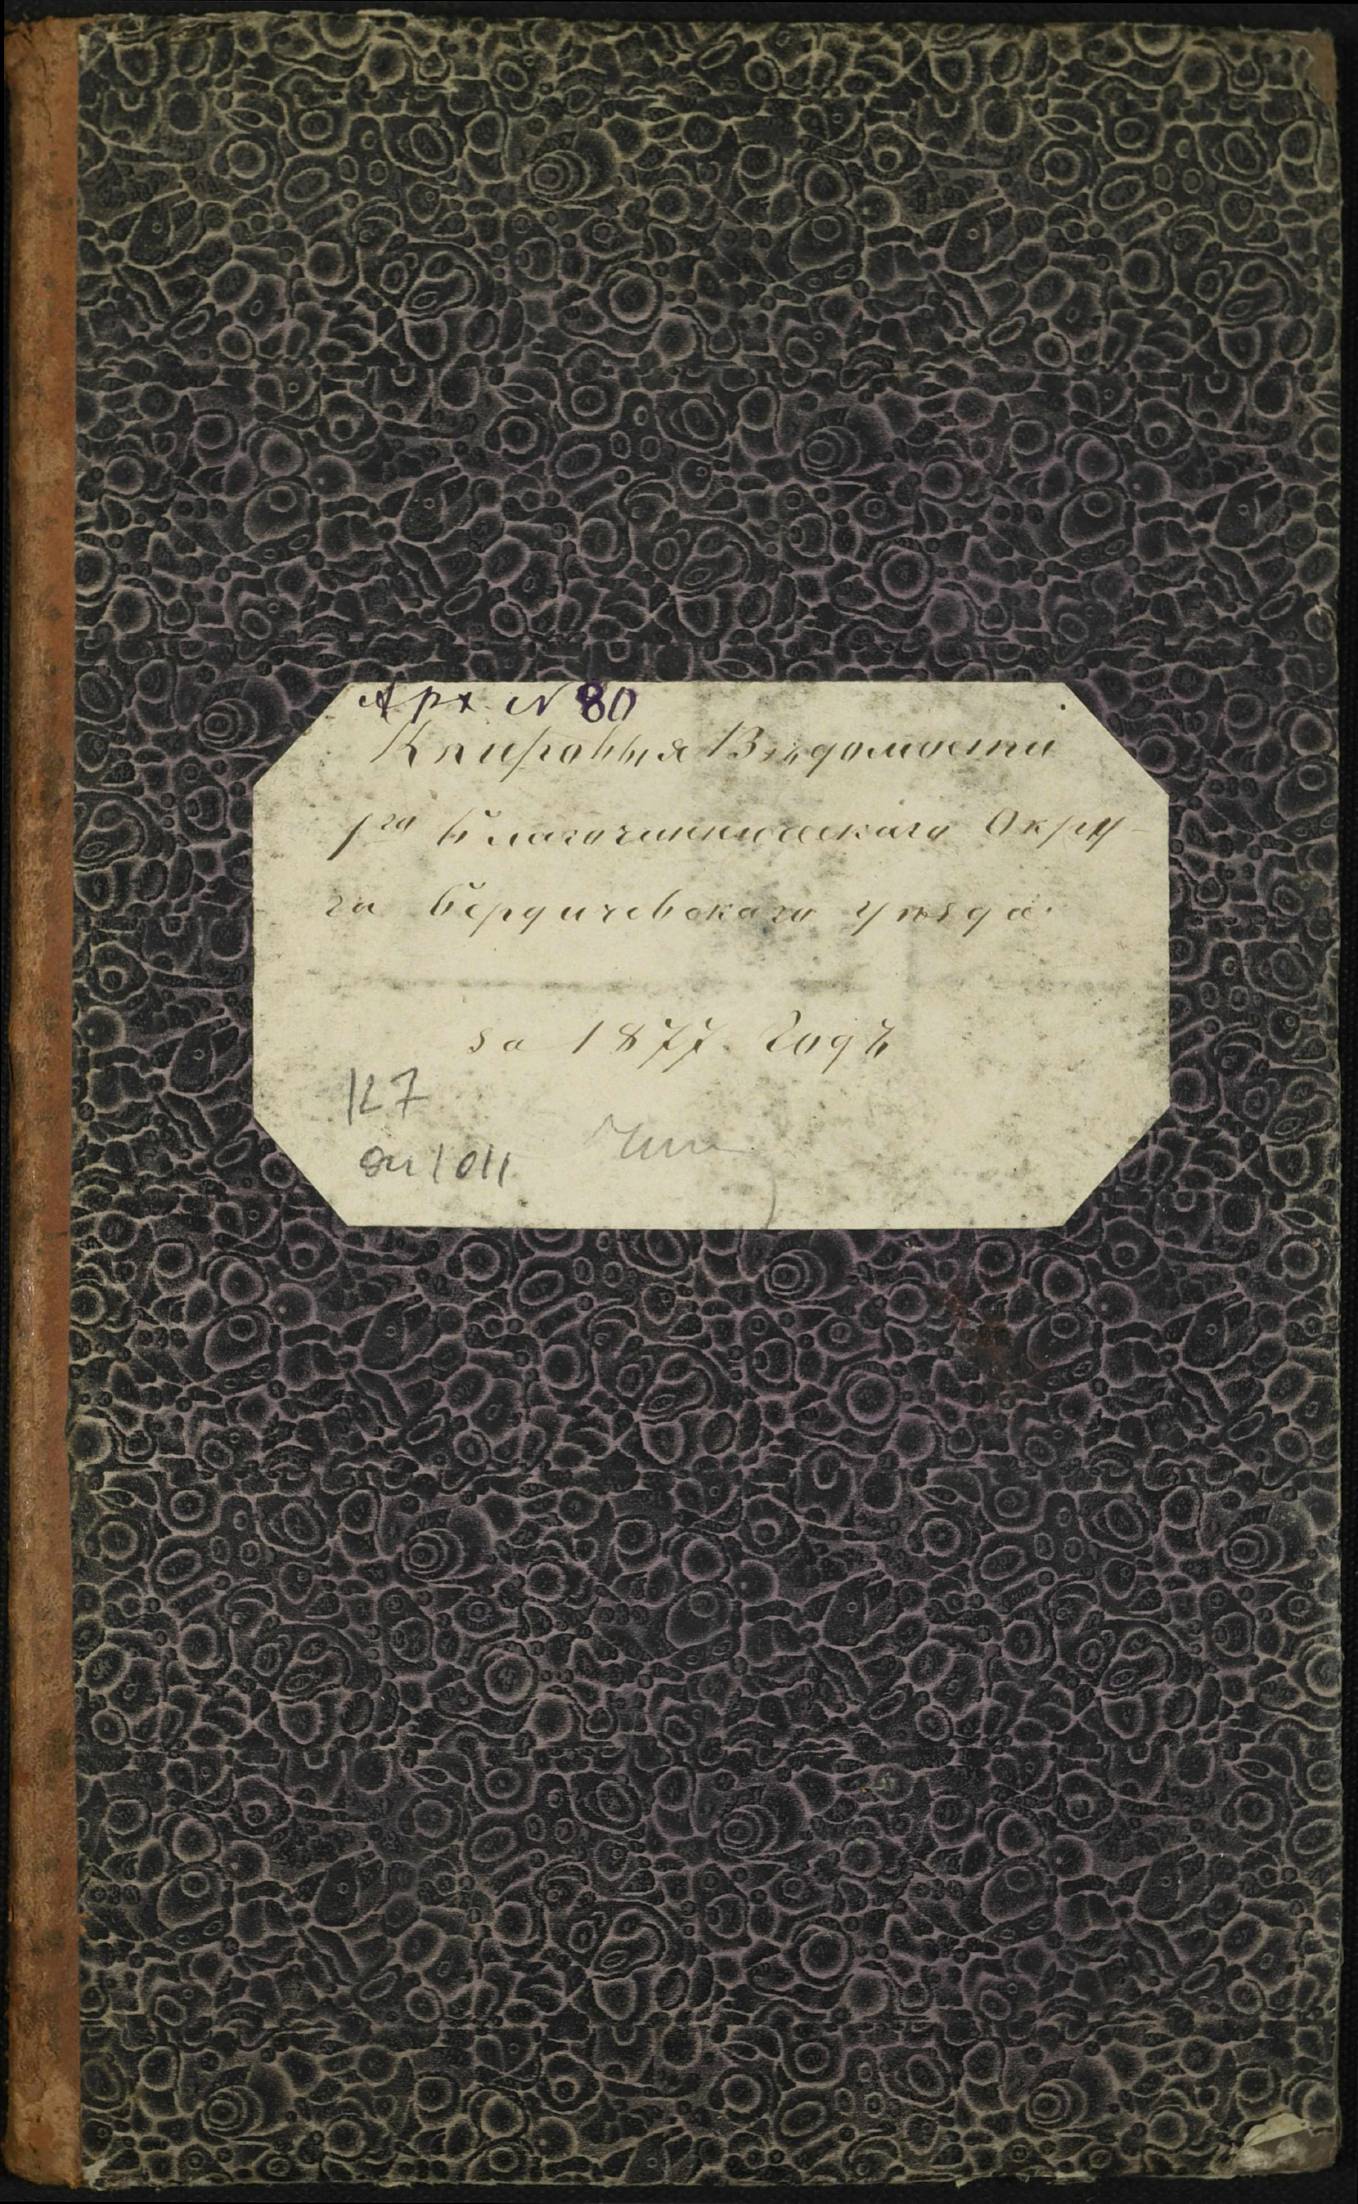 Арх N 80
Клировыя Вѣдомости
1го Благочинническаго Окру-
га Бердичевскаго уѣзда.
за 1877. Годъ
127